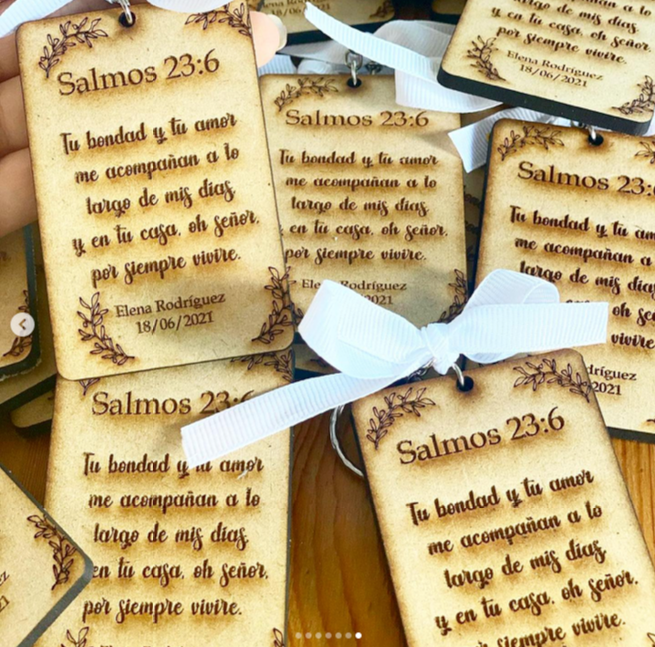 Salmos 23:6
Tu bondad y tu amor
me acompañan a lo
largo de mis días,
y en tu casa, oh Señor,
por siempre vivire.
Elena Rodríguez
18/06/2021
Salmos 23:6
Tu bondad y tu amor
me acompañan a lo
largo de mis días,
y en tu casa, oh Señor,
por siempre vivire.
2021
y en tu casa, oh Señor,
por siempre vivire.
Elena Rodríguez
18/06/2021
Salmos 23:6
Tu bondad y tu
me acompañan a
largo de mis días
oh Señ
vivire
dríguez
2021
Salmos 23:6
Tu bondad y tu amor
me acompañan a lo
largo de mis días,
en tu casa, oh Señor,
por siempre vivire.
Salmos 23:6
Tu bondad y tu amor
me acompañan a lo
largo de mis días,
y en tu casa, oh Señor,
por siempre vivire.